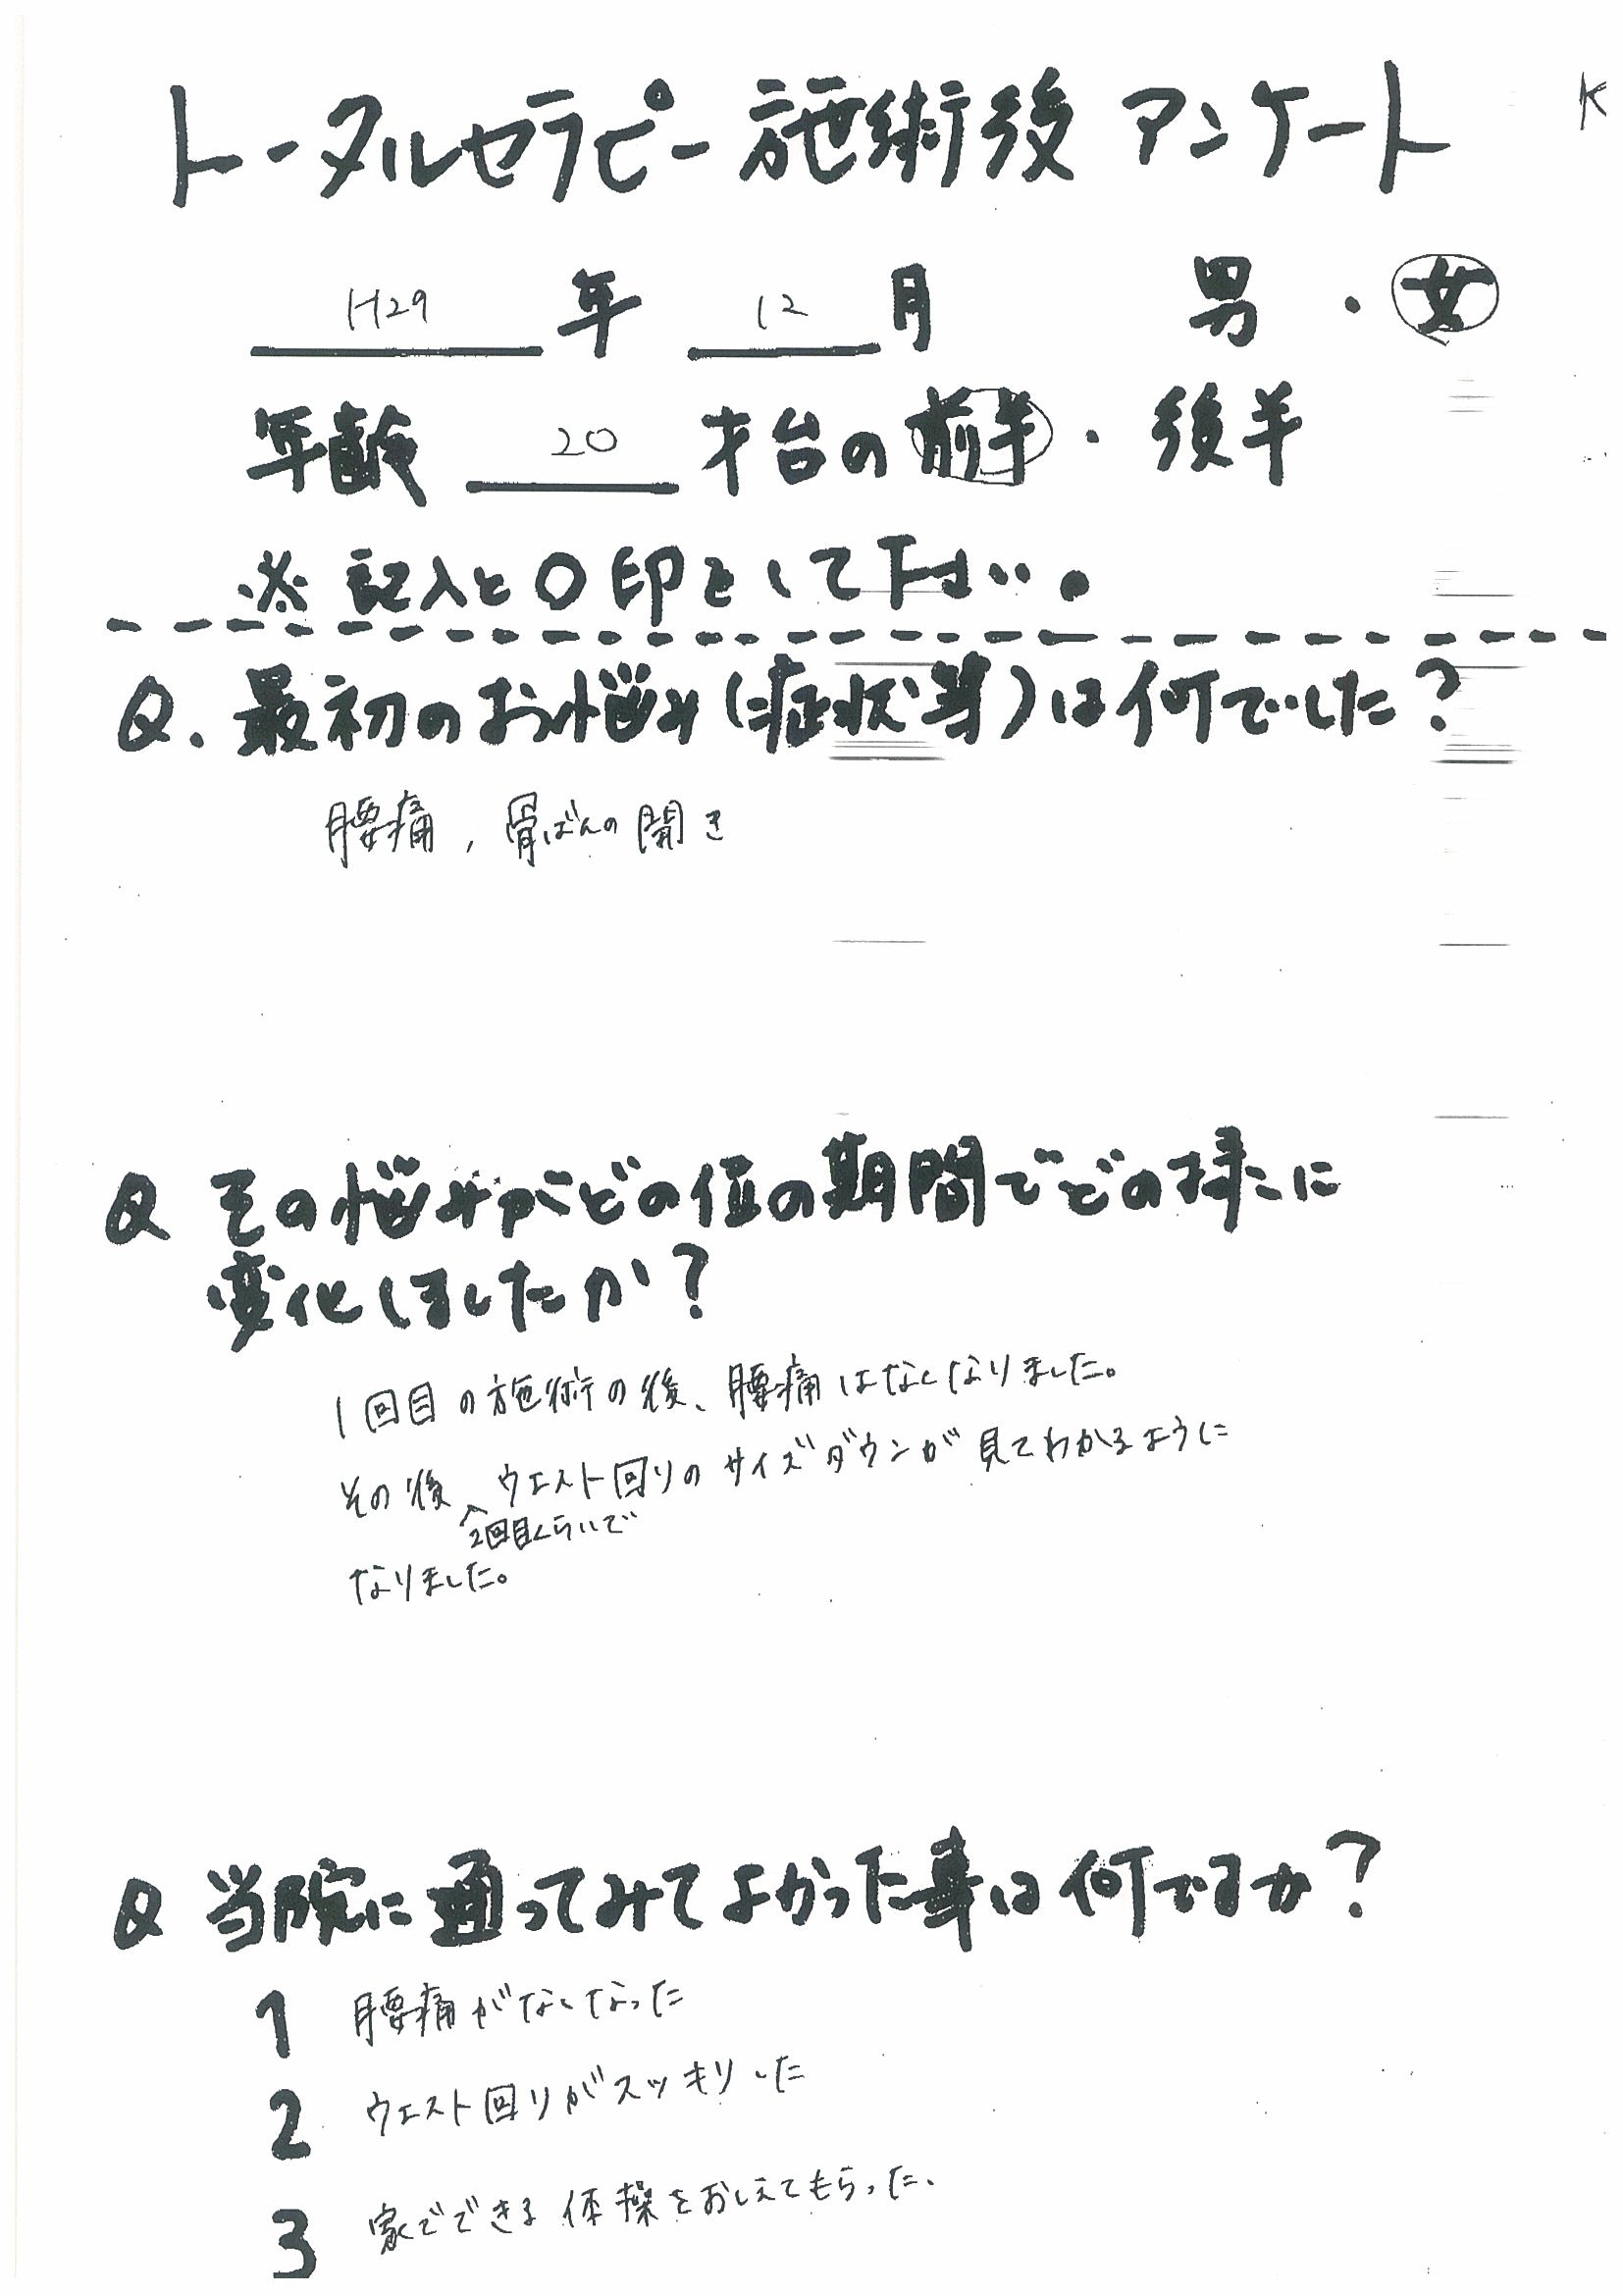 トータルセラピー施術後アンケート
K
H29年 12月 男・女
年齢 20才台の前半・後半
※記入と○印をして下さい。
Q.最初のお悩み(症状等)は何でした?
腰痛,骨ばんの開き
Q その悩みがどの位の期間でどの様に
変化しましたか?
1回目の施術の後、腰痛はなくなりました。
その後 ウエスト回りのサイズダウンが見てわかるように
2回目くらいで
なりました。
Q 当院に通ってみてよかった事は何ですか?
1 腰痛がなくなった
2 ウエスト回りがスッキリした
3 家でできる体操をおしえてもらった、